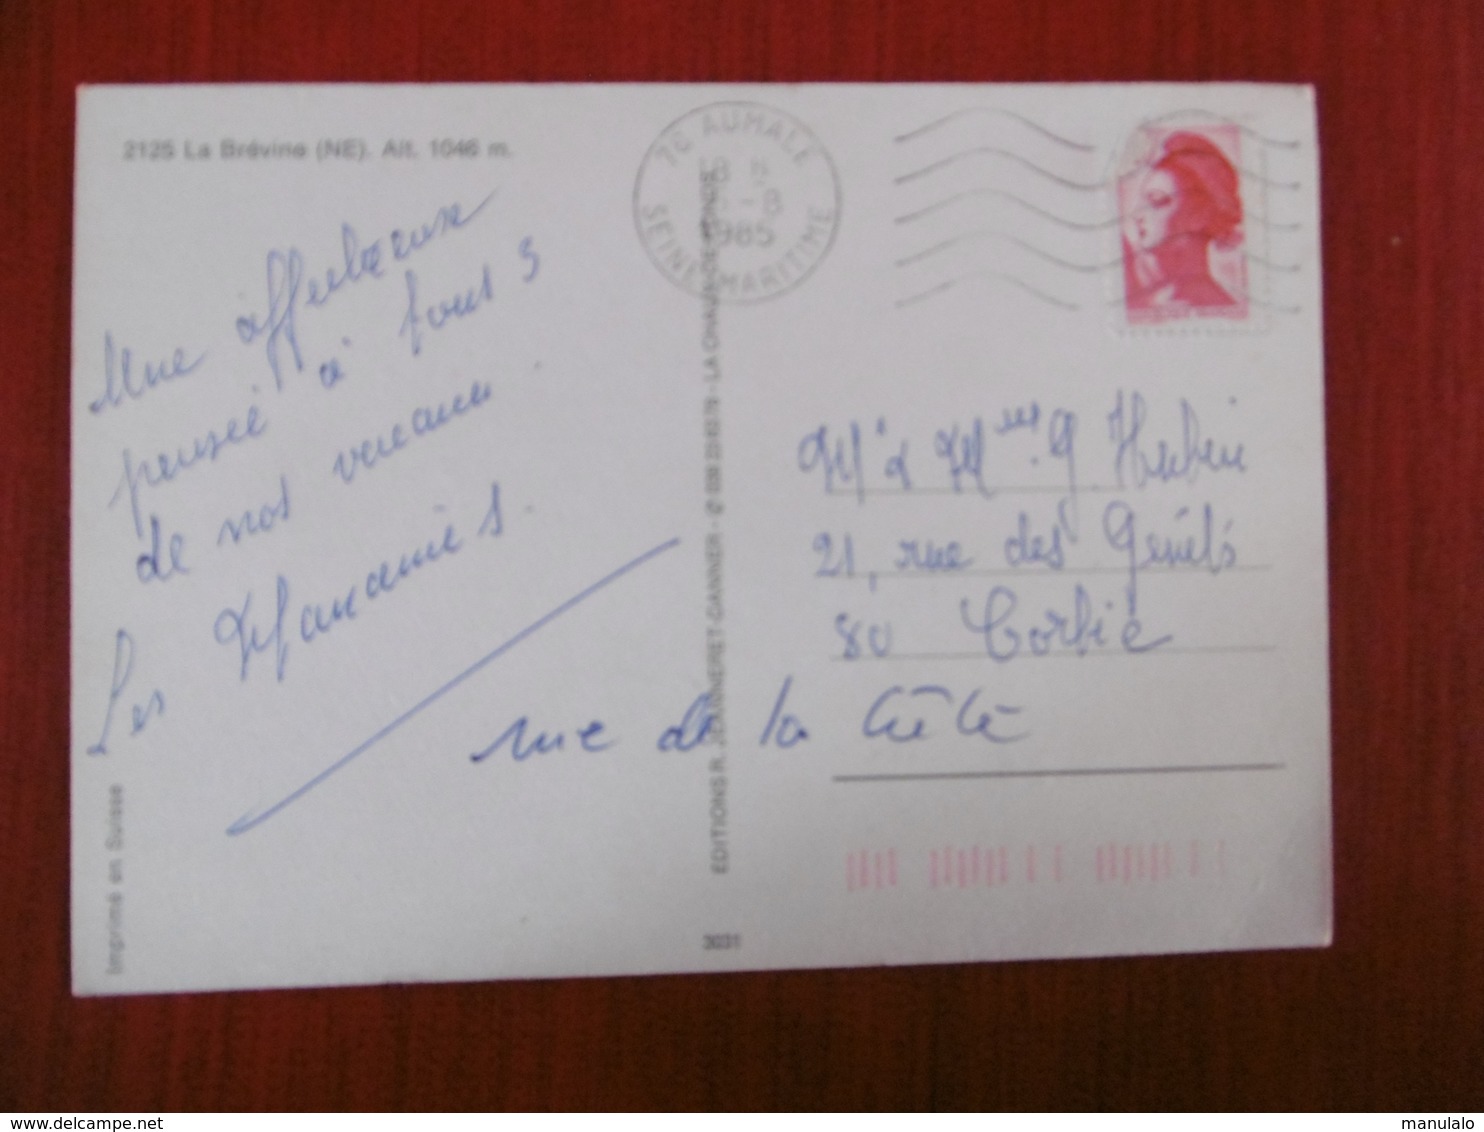 2125 La Brévine (NE). Alt. 1046 m.
76 AUMALE
18 H
-8
1985
SEINE MARITIME
Une affectueuse
pensée à tous 3
de nos vacances.
Les
M. & Mme. G.
21, rue des Genêts
80 Corbie
rue de la
EDITIONS R. JEANNERET-DANNER - LA CHAUX-DE-FONDS
Imprimé en Suisse
3031
www.delcampe.net
manulalo